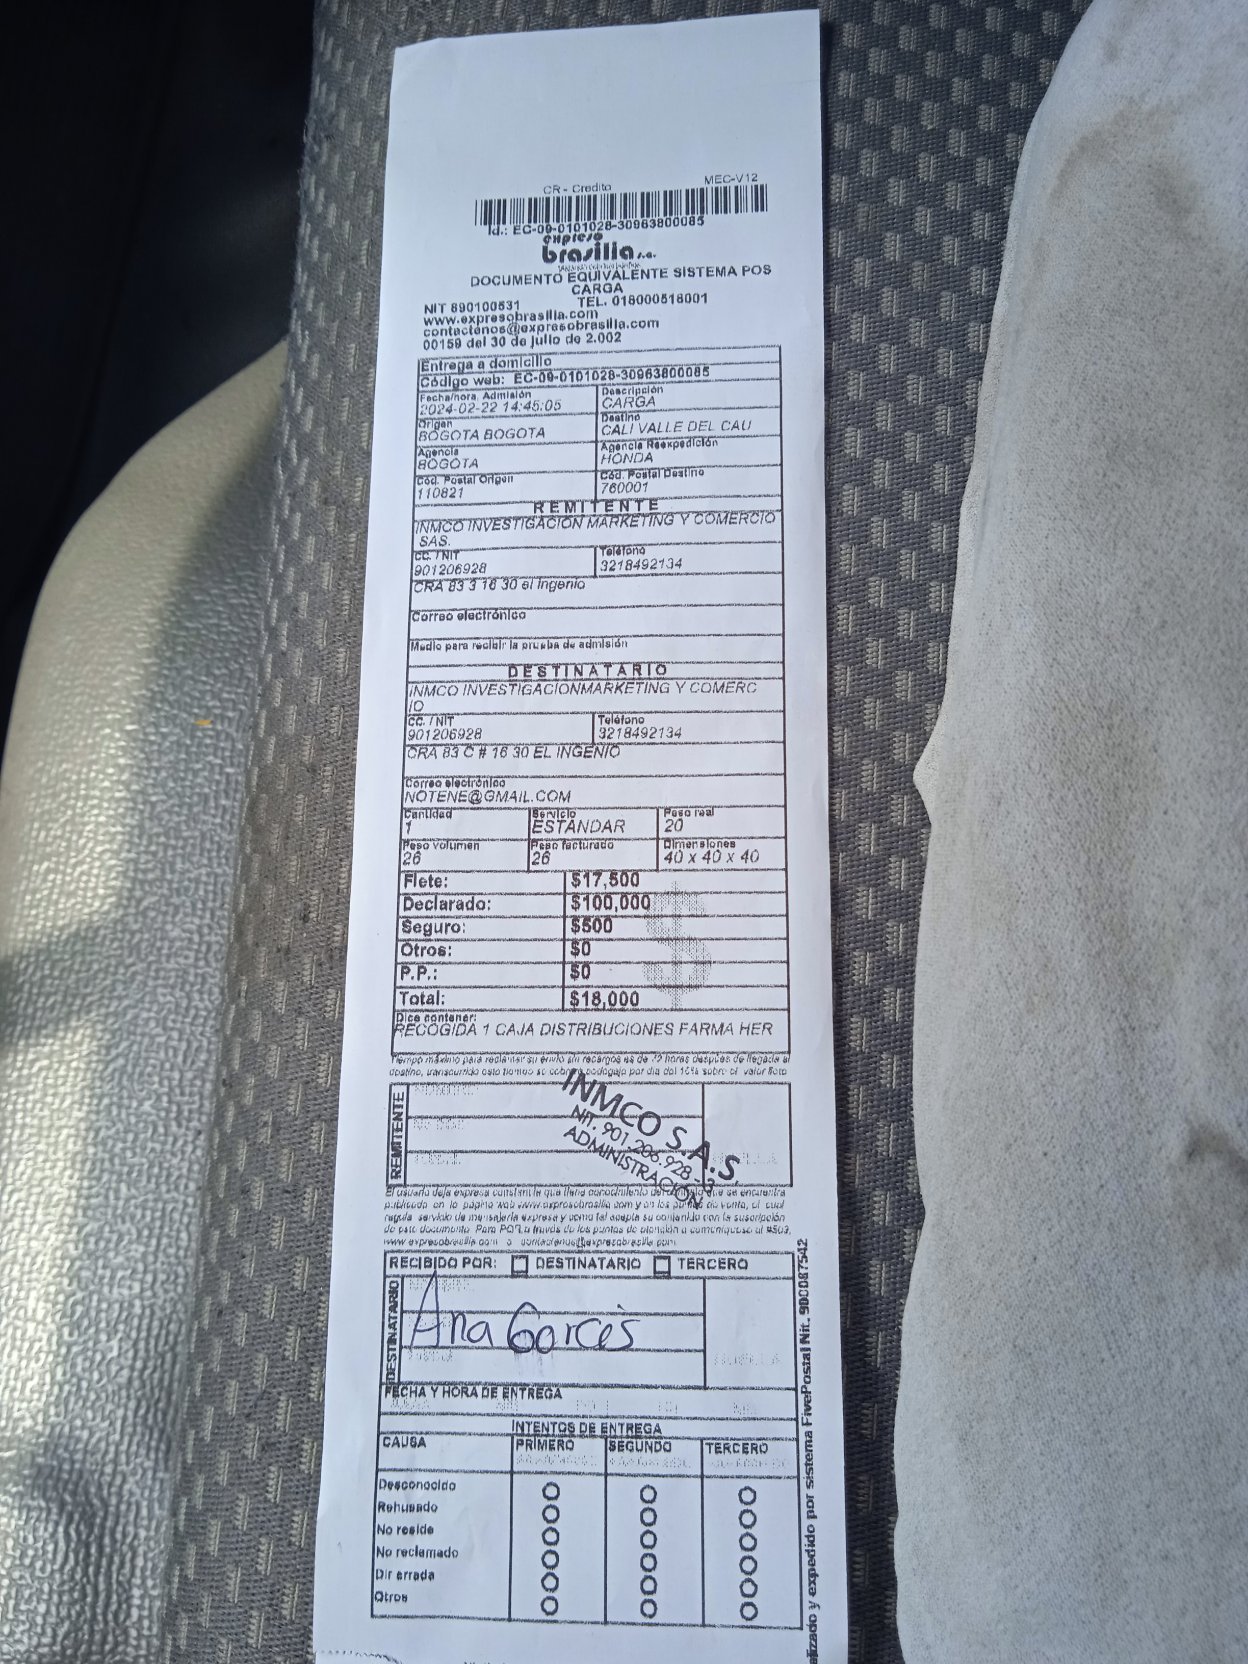 CR - Credito MEC-V12
Id.: EC-09-0101028-30963800085
expreso
brasilia s.a.
DOCUMENTO EQUIVALENTE SISTEMA POS
CARGA
NIT 890100531 TEL. 018000518001
www.expresobrasilia.com
contactenos@expresobrasilia.com
00159 del 30 de julio de 2.002
Entrega a domicilio
Código web: EC-09-0101028-30963800085
Fecha/hora. Admisión Descripción
2024-02-22 14:45:05 CARGA
Origen Destino
BOGOTA BOGOTA CALI VALLE DEL CAU
Agencia Agencia Reexpedición
BOGOTA HONDA
Cód. Postal Origen Cód. Postal Destino
110821 760001
REMITENTE
INMCO INVESTIGACION MARKETING Y COMERCIO
SAS.
CC. / NIT Teléfono
901206928 3218492134
CRA 83 3 16 30 el Ingenio
Correo electrónico
Medio para recibir la prueba de admisión
DESTINATARIO
INMCO INVESTIGACIONMARKETING Y COMERC
IO
CC. / NIT Teléfono
901206928 3218492134
CRA 83 C # 16 30 EL INGENIO
Correo electrónico
NOTENE@GMAIL.COM
Cantidad Servicio Peso real
1 ESTANDAR 20
Peso volumen Peso facturado Dimensiones
26 26 40 x 40 x 40
Flete: $17,500
Declarado: $100,000
Seguro: $500
Otros: $0
P.P.: $0
Total: $18,000
$
Dice contener:
RECOGIDA 1 CAJA DISTRIBUCIONES FARMA HER
Tiempo máximo para reclamar su envío sin recargos es de 72 horas después de llegada al
destino, transcurrido este tiempo se cobrará bodegaje por día del 10% sobre el valor flete
REMITENTE
INMCO S.A.S.
NIT. 901.206.928 - 3
ADMINISTRACIÓN
El usuario deja expresa constancia que tiene conocimiento del contrato que se encuentra
publicado en la página web www.expresobrasilia.com y en los puntos de venta, el cual
regula servicio de mensajería expresa y como tal acepta su contenido con la suscripción
de este documento. Para PQR a través de los puntos de atención o comuníquese al #503,
www.expresobrasilia.com o contactenos@expresobrasilia.com
RECIBIDO POR: DESTINATARIO TERCERO
DESTINATARIO
Ana Garcés
FECHA Y HORA DE ENTREGA
INTENTOS DE ENTREGA
CAUSA PRIMERO SEGUNDO TERCERO
Desconocido
Rehusado
No reside
No reclamado
Dir errada
Otros
alizado y expedido por sistema FivePostal Nit. 900087542